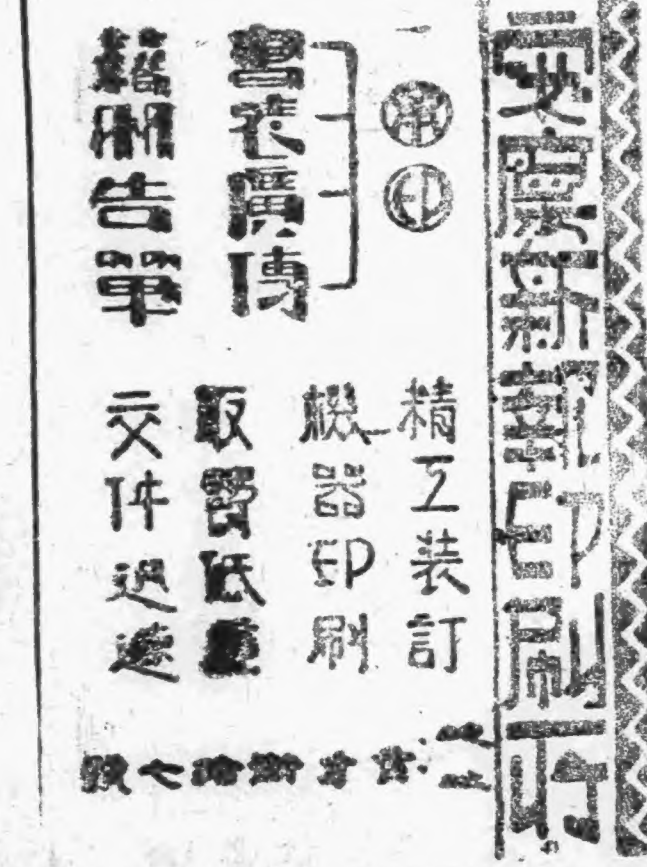 新報印刷所
承印
書表廣傳
籍冊告單
精工裝訂
機器印刷
取費低廉
交件迅速
地址：街拾七號